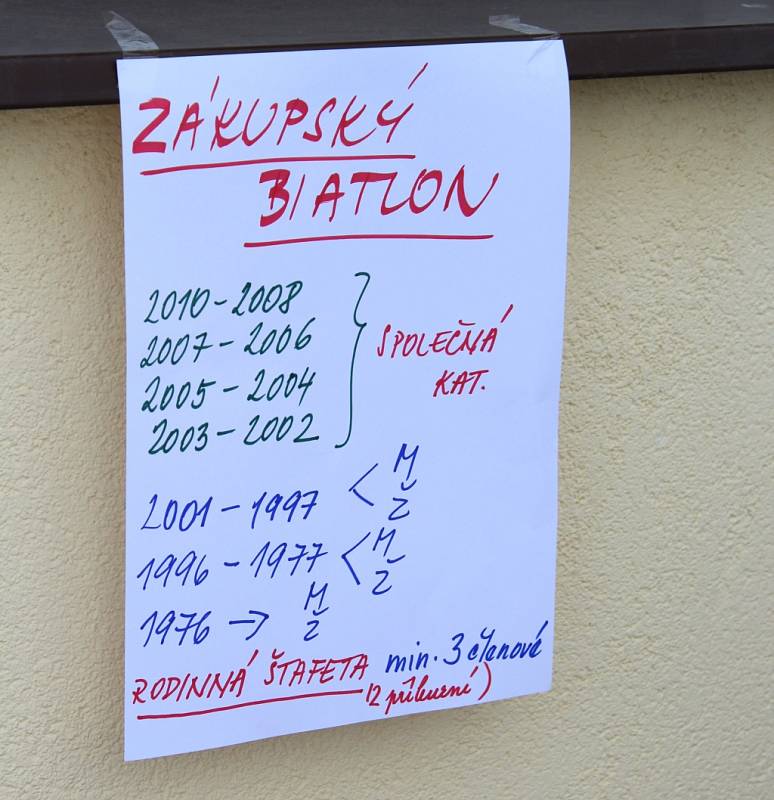 ZÁKUPSKÝ
BIATLON
2010 - 2008
2007 - 2006
2005 - 2004
2003 - 2002
SPOLEČNÁ
KAT.
2001 - 1997 < M
Ž
1996 - 1977 < M
Ž
1976 → M
Ž
RODINNÁ ŠTAFETA min. 3 členové
(2 příbuzní)